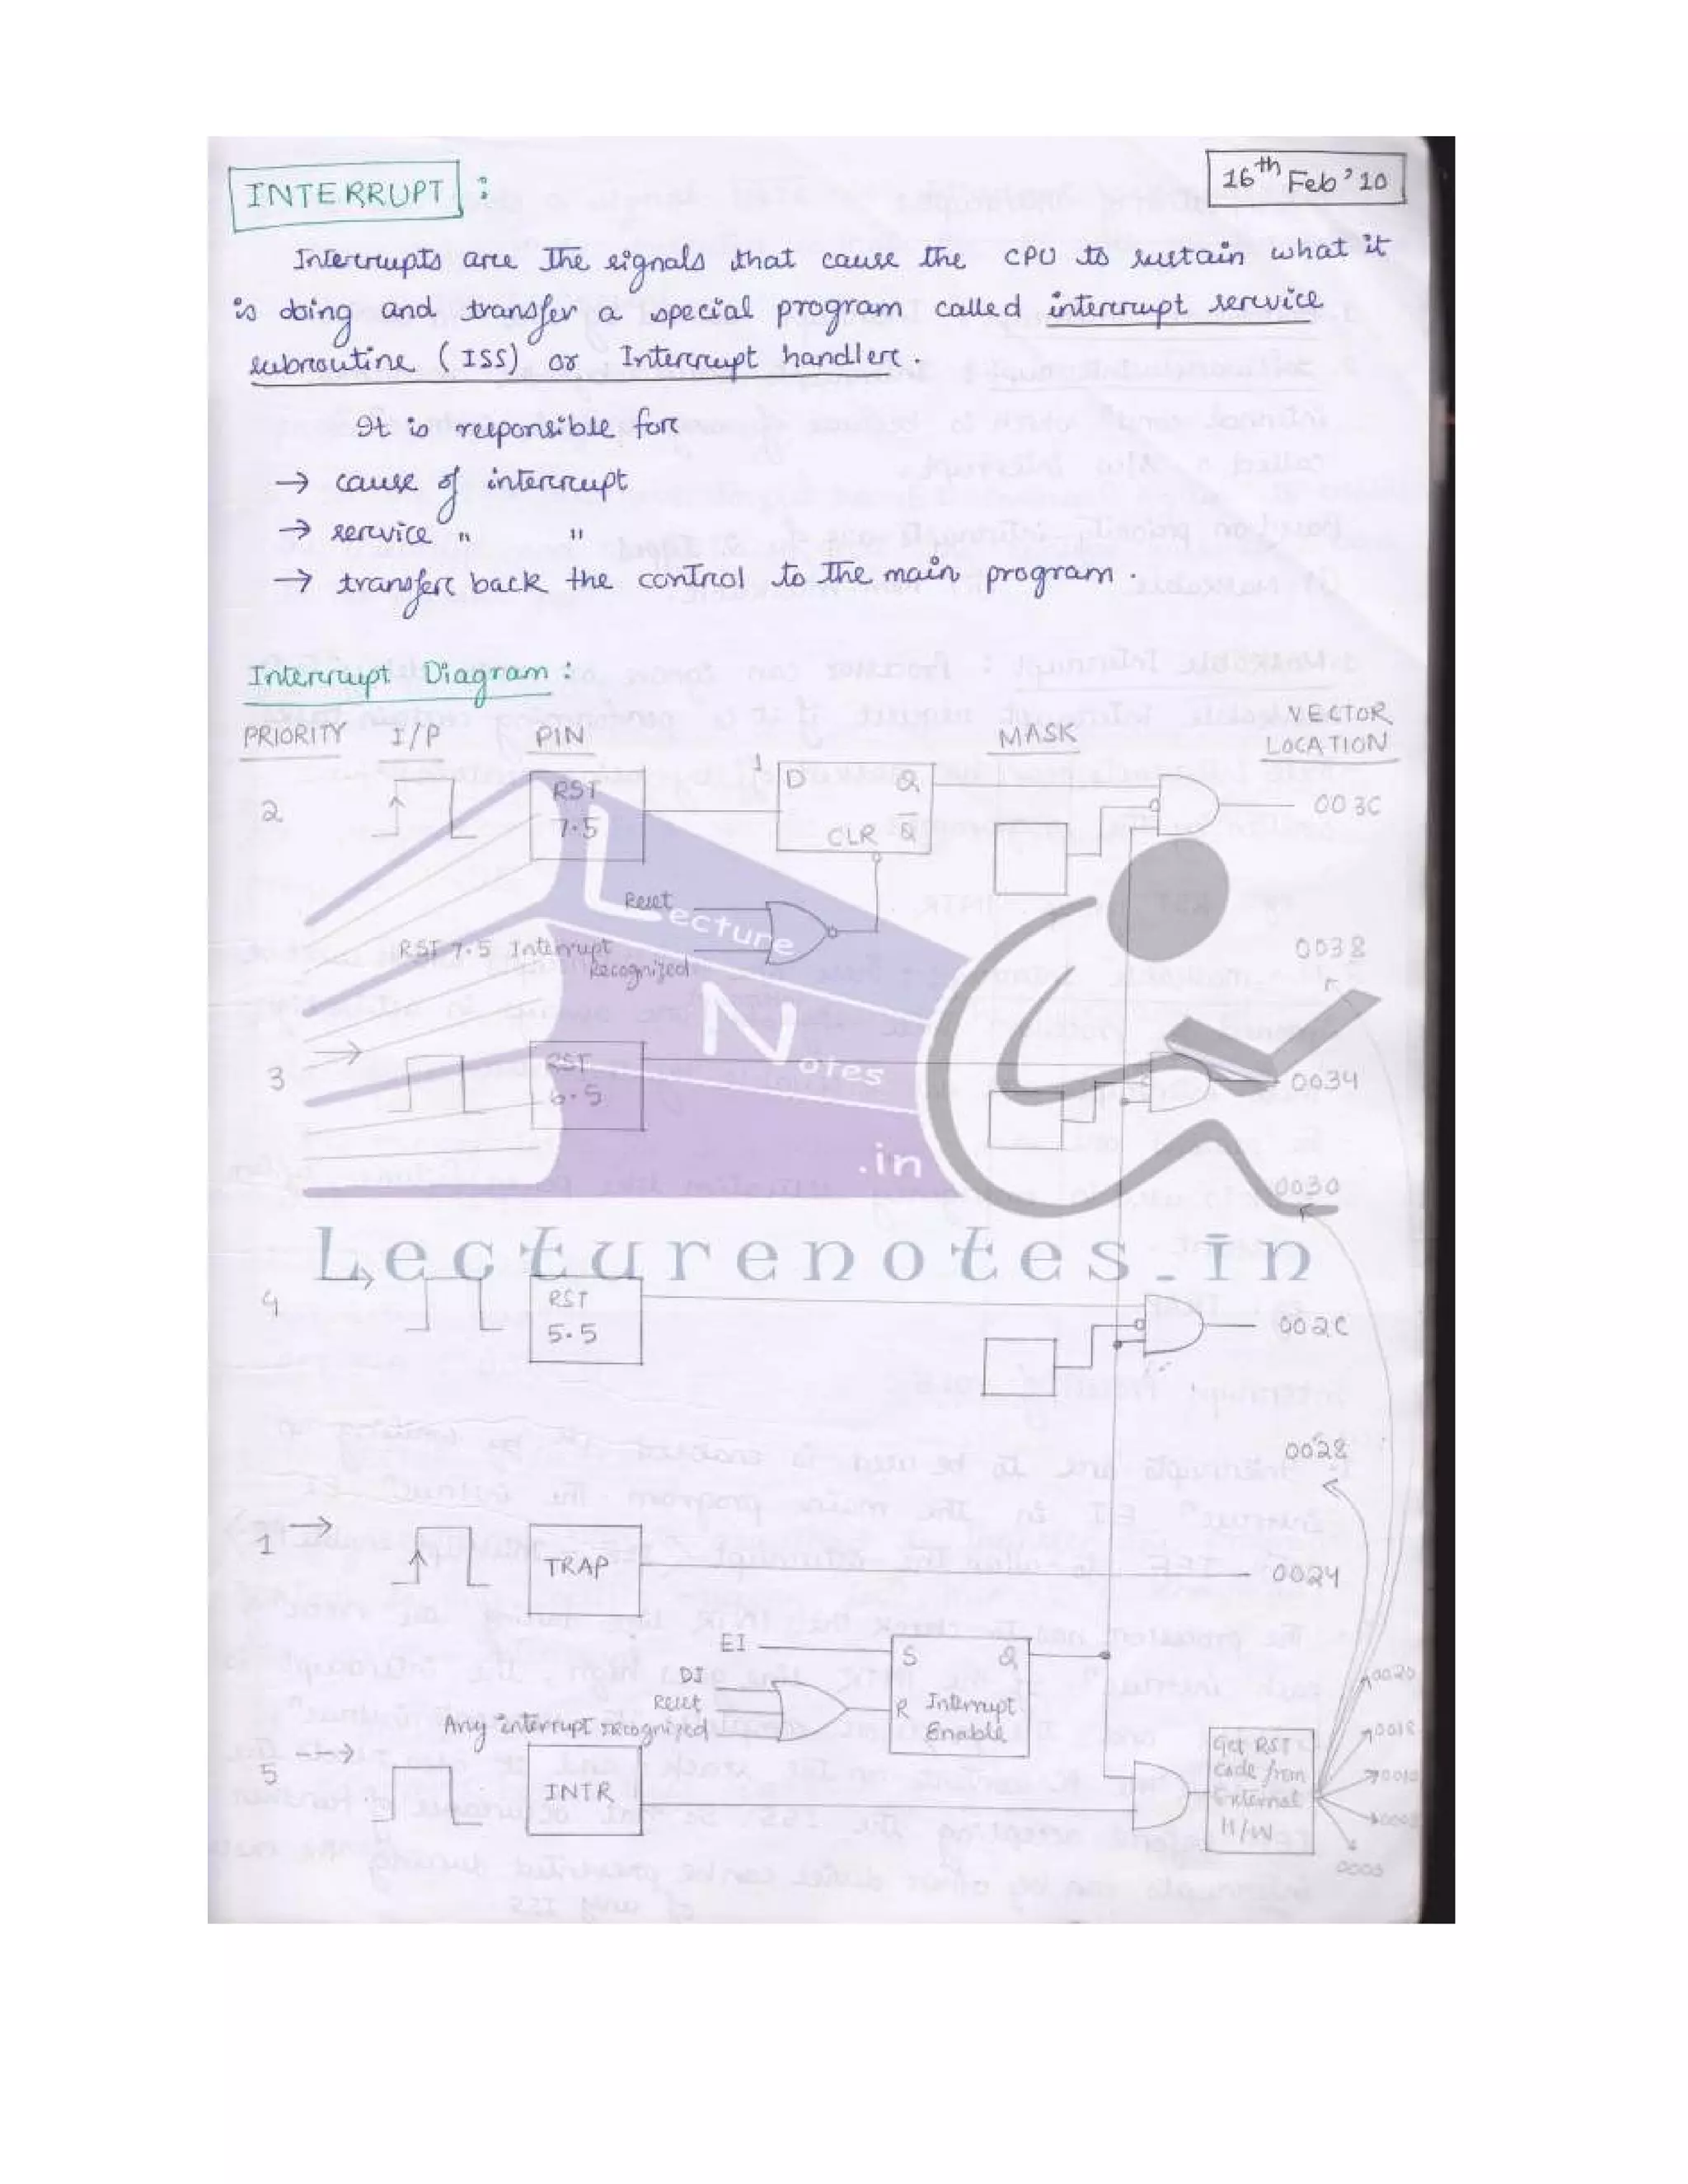 INTERRUPT :
16th Feb'10
Interrupts are the signals that cause the CPU to sustain what it
is doing and transfer a special program called interrupt service
subroutine (ISS) or Interrupt handler.
It is responsible for
→ cause of interrupt
→ service " "
→ transfer back the control to the main program.
Interrupt Diagram :
PRIORITY I/P PIN MASK VECTOR LOCATION
2 RST 7.5 1 D Q CLR Q̅ 003C
Reset
RST 7.5 Interrupt Recognized
0038
3 RST 6.5 0034
0030
4 RST 5.5 002C
0028
1 TRAP 0024
EI S Q
DI
Reset
Any interrupt recognized
R Interrupt Enable
5 INTR
Get RST Code from External H/W
0020
0018
0010
0008
0000
Lecture Notes .in
Lecturenotes.in